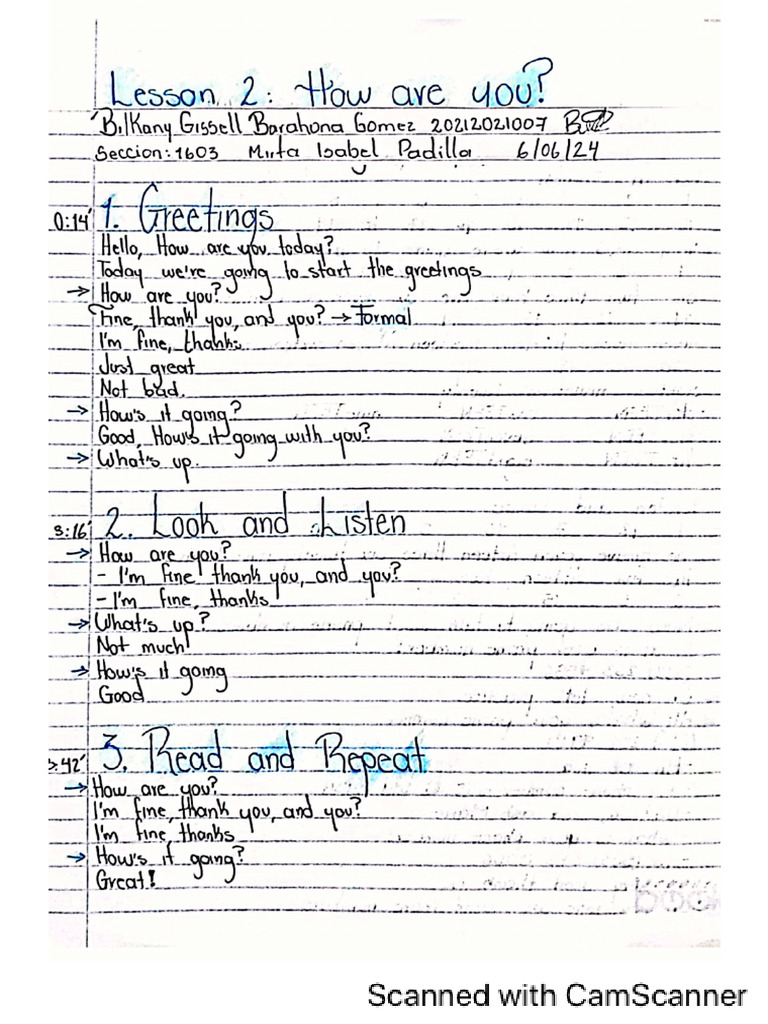 Lesson 2: How are you?
Bilkany Gissell Barahona Gomez 20212021007
Seccion: 1603 Mirta Isabel Padilla 6/06/24
0:14' 1. Greetings
Hello, How are you today?
Today we're going to start the greetings
→ How are you?
Fine, thank you, and you? → Formal
I'm fine, thanks
Just great
Not bad.
→ How's it going?
Good, How's it going with you?
→ What's up.
3:16' 2. Look and Listen
→ How are you?
- I'm fine thank you, and you?
- I'm fine, thanks
→ What's up?
Not much
→ How's it going
Good
:42' 3. Read and Repeat
→ How are you?
I'm fine, thank you, and you?
I'm fine, thanks
→ How's it going?
Great!
Scanned with CamScanner